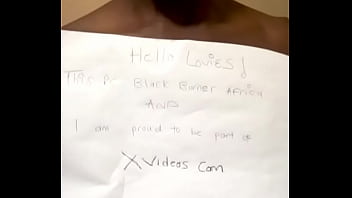 Hello Lovies!
This is Black Boner Africa
AND
I am proud to be part of
XVideos Com